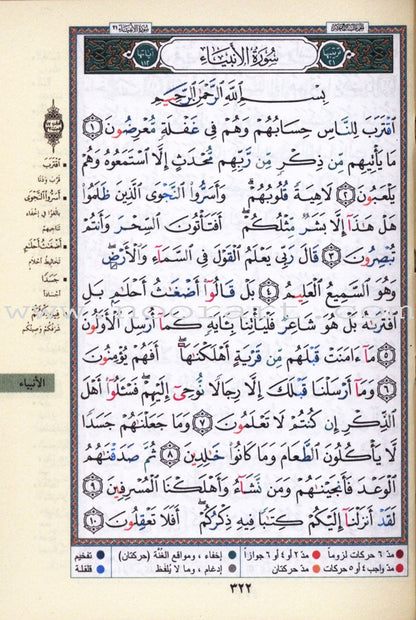 سُورَةُ الأَنْبِيَاء ٢١
ترتيبها ٢١
سُورَةُ الأَنْبِيَاءِ
آياتها ١١٢
بِسْمِ اللَّهِ الرَّحْمَٰنِ الرَّحِيمِ
ٱقْتَرَبَ لِلنَّاسِ حِسَابُهُمْ وَهُمْ فِي غَفْلَةٍ مُّعْرِضُونَ ١
مَا يَأْتِيهِم مِّن ذِكْرٍ مِّن رَّبِّهِم مُّحْدَثٍ إِلَّا ٱسْتَمَعُوهُ وَهُمْ
يَلْعَبُونَ ٢ لَاهِيَةً قُلُوبُهُمْ ۗ وَأَسَرُّوا۟ ٱلنَّجْوَى ٱلَّذِينَ ظَلَمُوا۟
هَلْ هَٰذَآ إِلَّا بَشَرٌ مِّثْلُكُمْ ۖ أَفَتَأْتُونَ ٱلسِّحْرَ وَأَنتُمْ
تُبْصِرُونَ ٣ قَالَ رَبِّي يَعْلَمُ ٱلْقَوْلَ فِي ٱلسَّمَآءِ وَٱلْأَرْضِ ۖ
وَهُوَ ٱلسَّمِيعُ ٱلْعَلِيمُ ٤ بَلْ قَالُوٓا۟ أَضْغَٰثُ أَحْلَٰمٍۭ بَلِ
ٱفْتَرَىٰهُ بَلْ هُوَ شَاعِرٌ فَلْيَأْتِنَا بِـَٔايَةٍ كَمَآ أُرْسِلَ ٱلْأَوَّلُونَ
٥ مَآ ءَامَنَتْ قَبْلَهُم مِّن قَرْيَةٍ أَهْلَكْنَٰهَآ ۖ أَفَهُمْ يُؤْمِنُونَ
٦ وَمَآ أَرْسَلْنَا قَبْلَكَ إِلَّا رِجَالًا نُّوحِيٓ إِلَيْهِمْ ۖ فَسْـَٔلُوٓا۟ أَهْلَ
ٱلذِّكْرِ إِن كُنتُمْ لَا تَعْلَمُونَ ٧ وَمَا جَعَلْنَٰهُمْ جَسَدًا
لَّا يَأْكُلُونَ ٱلطَّعَامَ وَمَا كَانُوا۟ خَٰلِدِينَ ٨ ثُمَّ صَدَقْنَٰهُمُ
ٱلْوَعْدَ فَأَنجَيْنَٰهُمْ وَمَن نَّشَآءُ وَأَهْلَكْنَا ٱلْمُسْرِفِينَ ٩
لَقَدْ أَنزَلْنَآ إِلَيْكُمْ كِتَٰبًا فِيهِ ذِكْرُكُمْ ۖ أَفَلَا تَعْقِلُونَ ١٠
اقْتَرَبَ
قَرُبَ وَدَنَا
أَسَرُّوا النَّجْوَى
بالغوا في إخفاء
تناجيهم
أَضْغَاثُ أَحْلَامٍ
تخاليط أحلام
جَسَدًا
أجساداً
ذِكْرُكُمْ
شرفكم وصيتكم
الأنبياء
مدّ ٦ حركات لزوماً مدّ ٢ أو ٤ أو ٦ جوازاً إخفاء ، ومواقع الغُنَّة (حركتان) تفخيم
مدّ واجب ٤ أو ٥ حركات مدّ حركتان إدغام ، وما لا يُلفَظ قلقلة
٣٢٢
www.noorart.com